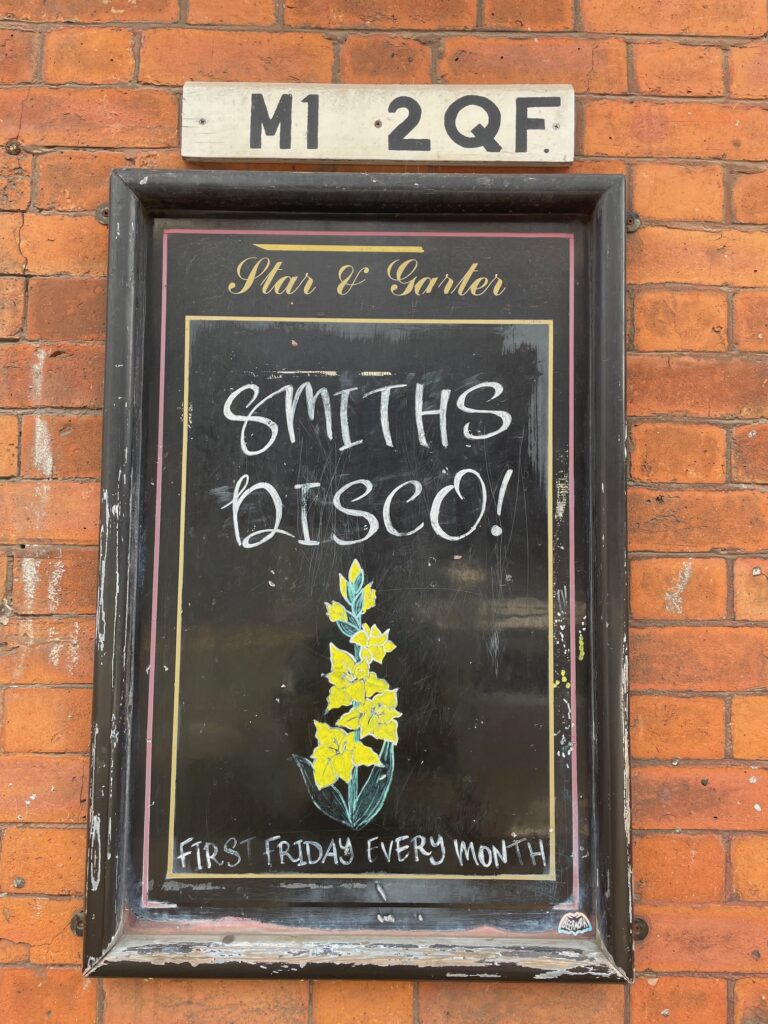 M1 2QF
Star & Garter
SMITHS
DISCO!
FIRST FRIDAY EVERY MONTH